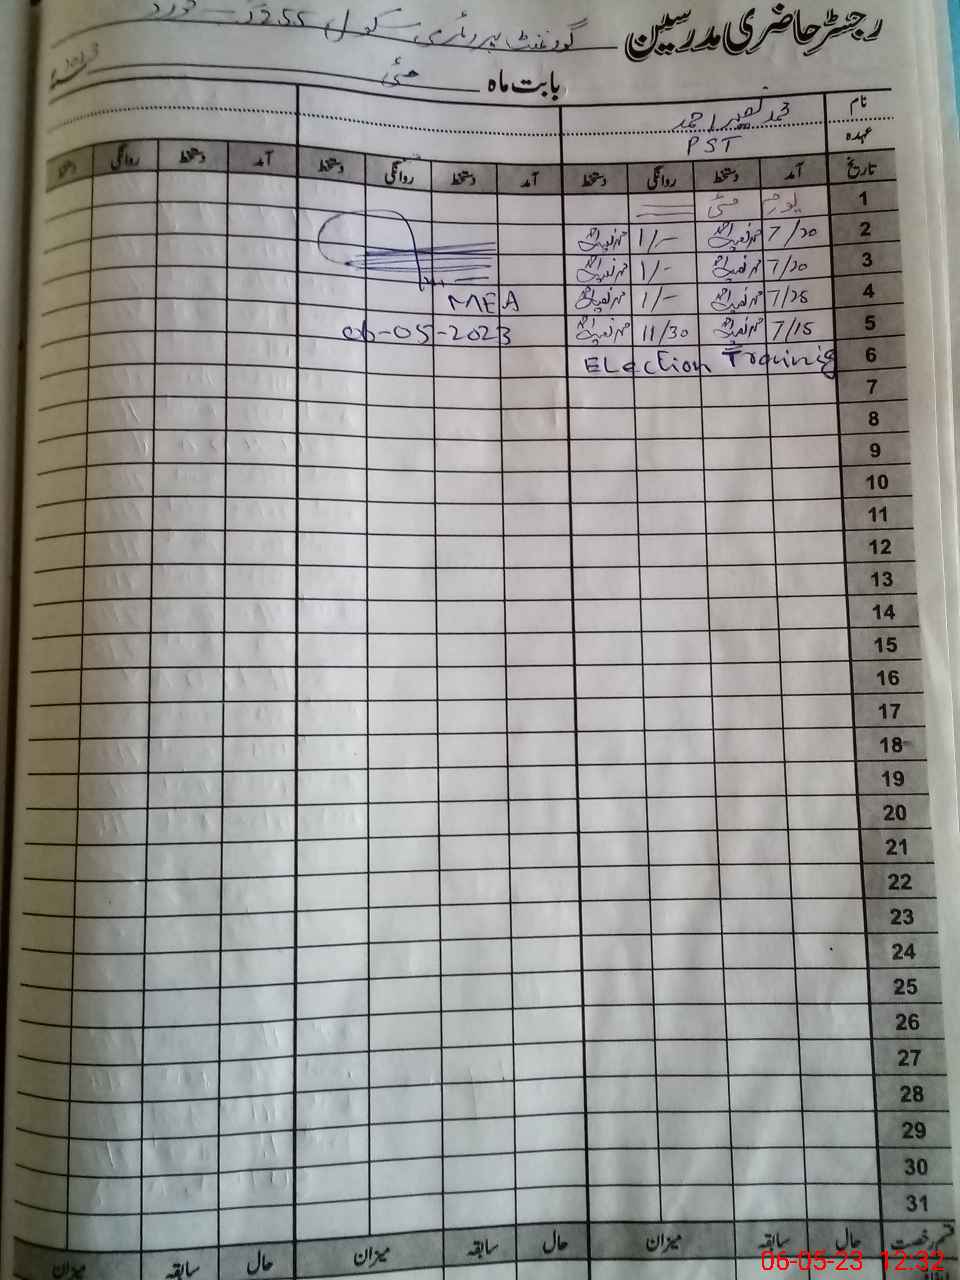 رجسٹر حاضری مدرسین گورنمنٹ پرائمری سکول
بابت ماہ مئی 2023
نام محمد نصیر احمد
عہدہ PST
تاریخ آمد دستخط روانگی دستخط آمد دستخط روانگی دستخط آمد دستخط روانگی دستخط
1 یوم مئی
2 7/20 1/-
3 7/20 1/-
4 7/25 1/- MEA
5 7/15 11/30 06-05-2023
6 ELection Training
7
8
9
10
11
12
13
14
15
16
17
18
19
20
21
22
23
24
25
26
27
28
29
30
31
قسم رخصت حال سابقہ میزان حال سابقہ میزان حال سابقہ میزان
06-05-23 12:32